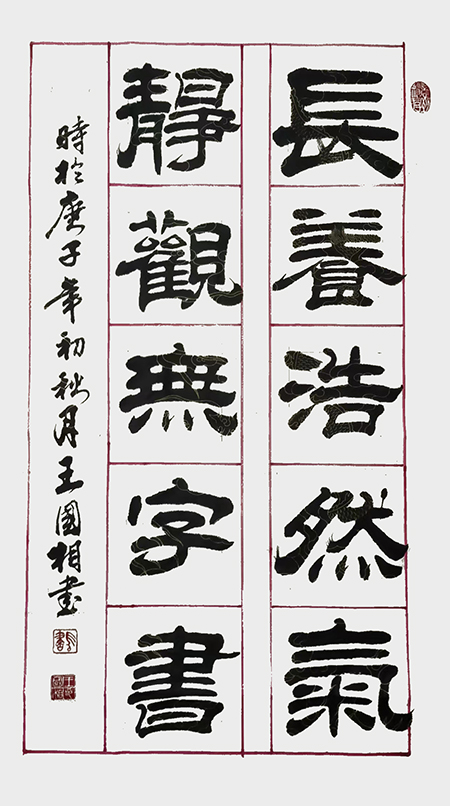 長養浩然氣
靜觀無字書
時於庚子年初秋月王國相書